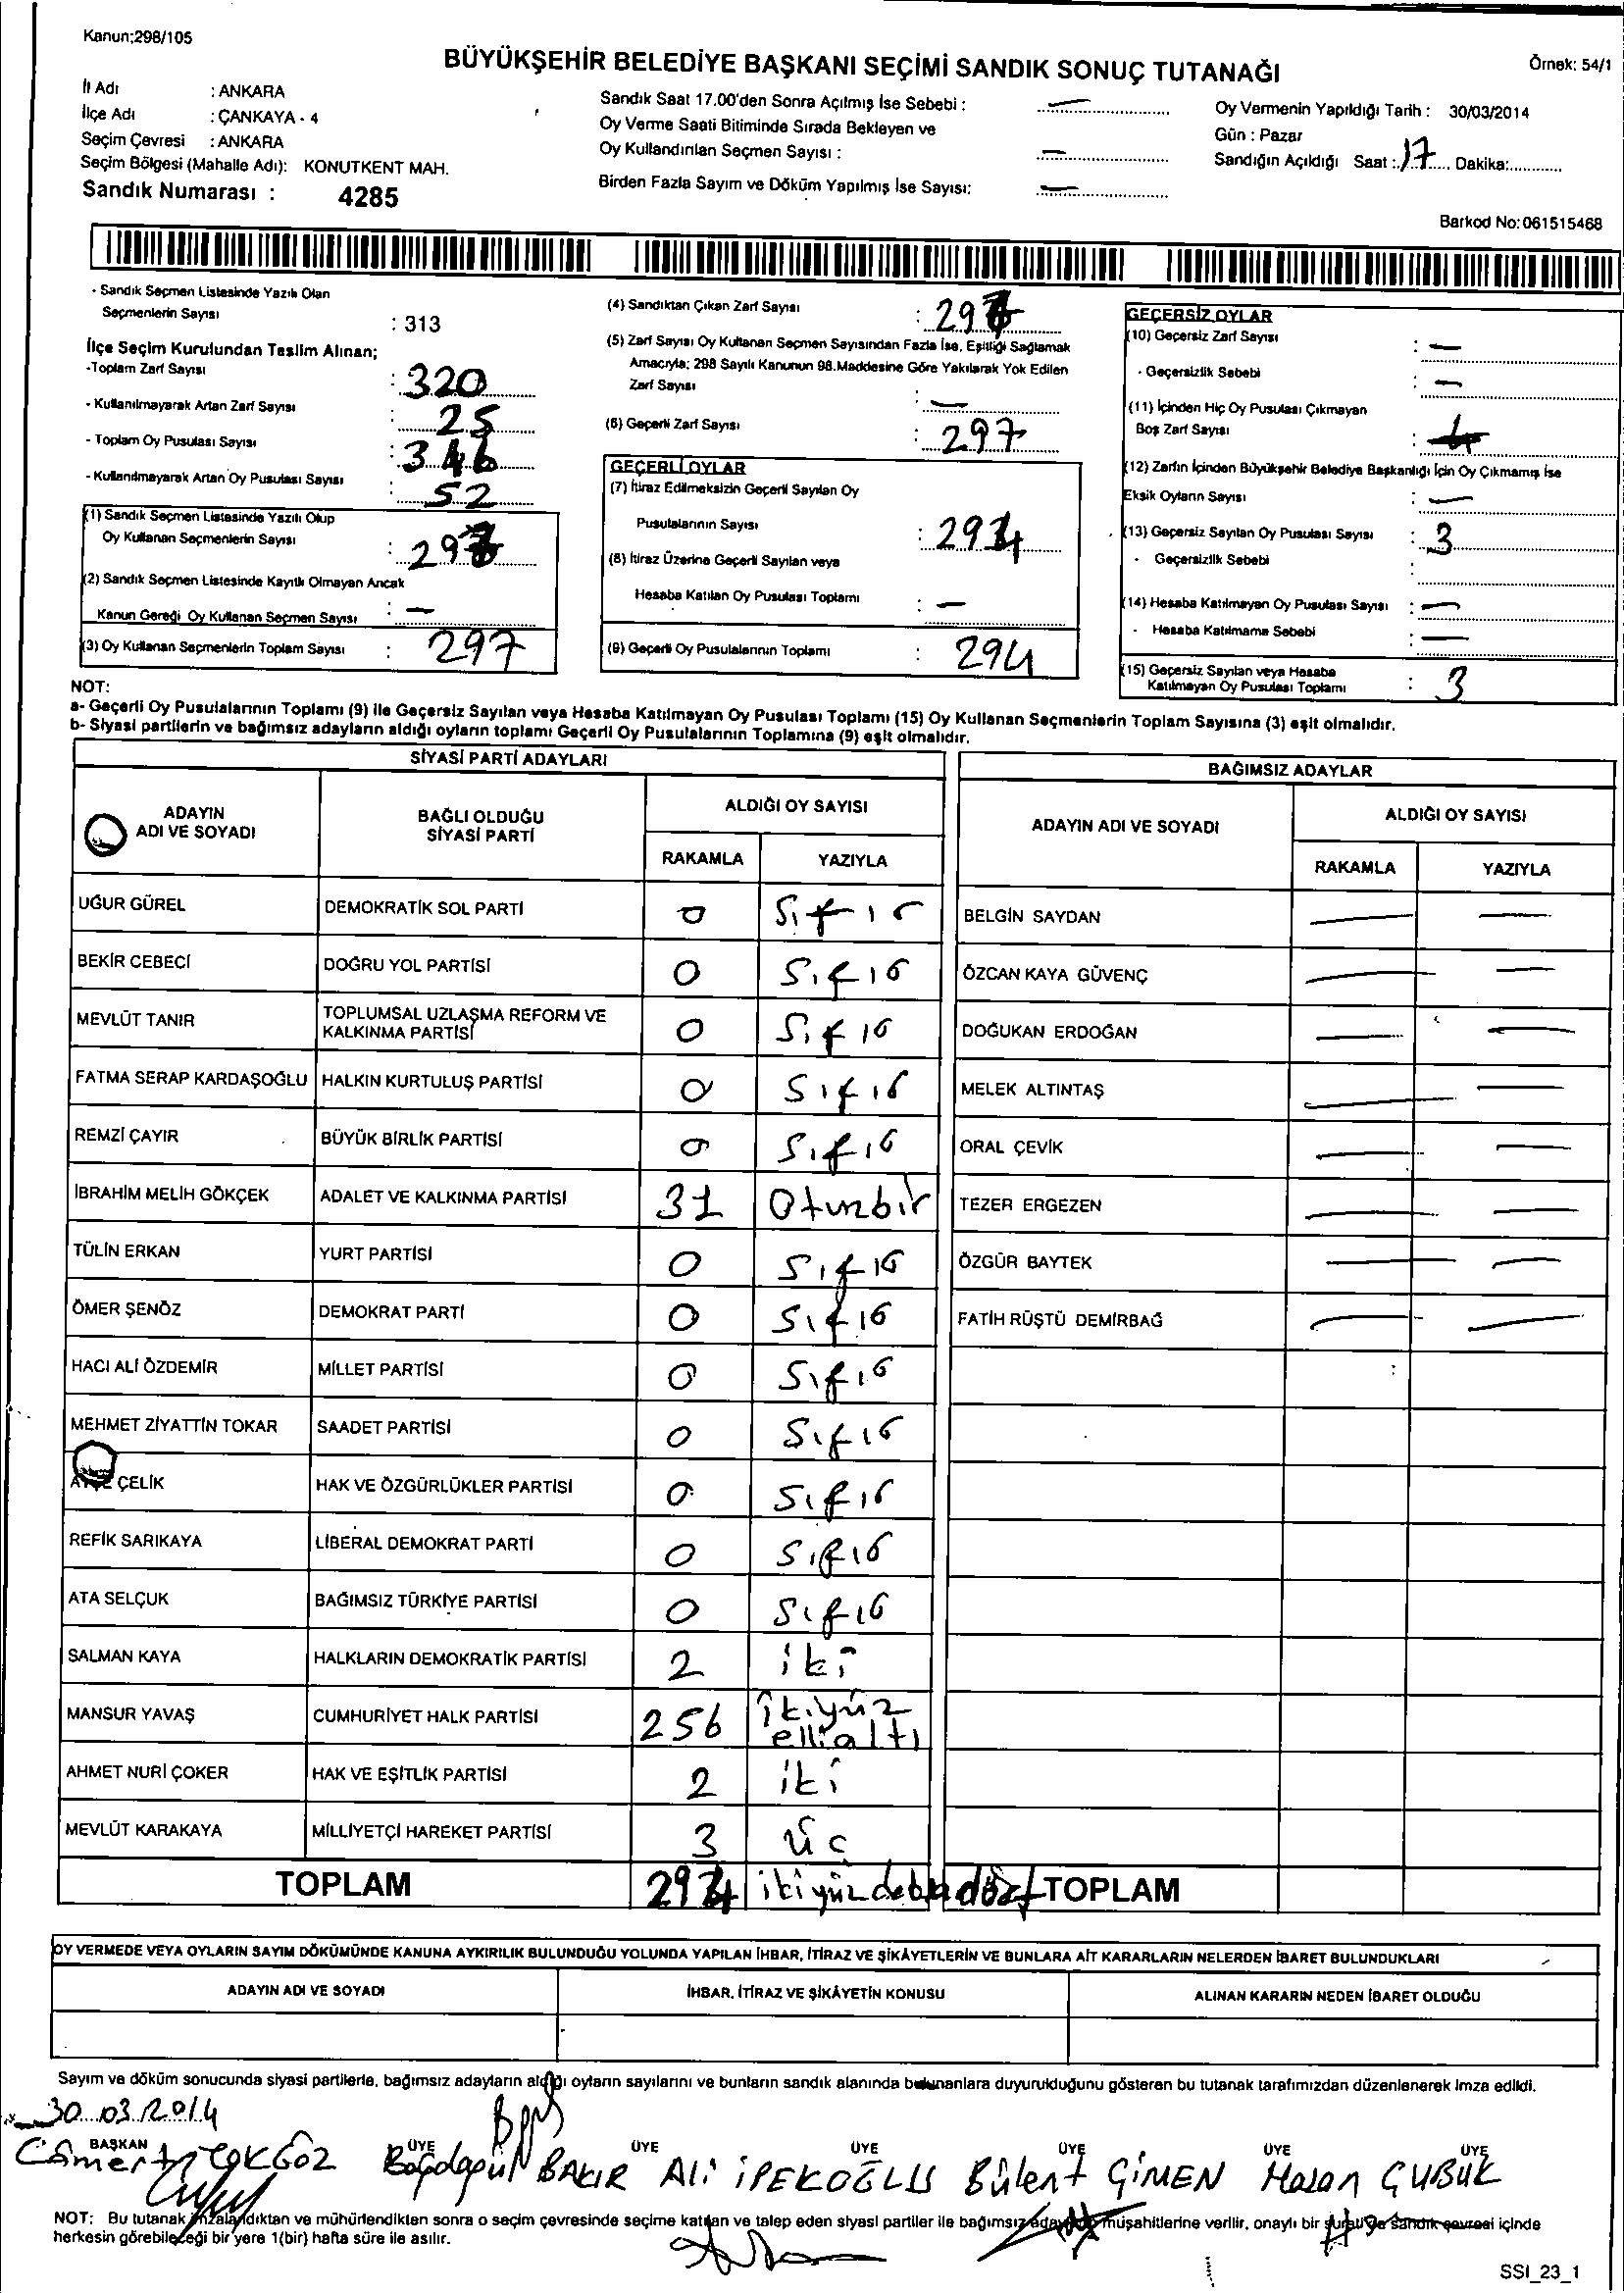 Kanun;298/105
BÜYÜKŞEHİR BELEDİYE BAŞKANI SEÇİMİ SANDIK SONUÇ TUTANAĞI
Örnek: 54/1
İl Adı : ANKARA
İlçe Adı : ÇANKAYA - 4
Seçim Çevresi : ANKARA
Seçim Bölgesi (Mahalle Adı): KONUTKENT MAH.
Sandık Numarası : 4285
Sandık Saat 17.00'den Sonra Açılmış İse Sebebi : —
Oy Verme Saati Bitiminde Sırada Bekleyen ve
Oy Kullandırılan Seçmen Sayısı : —
Birden Fazla Sayım ve Döküm Yapılmış İse Sayısı: —
Oy Vermenin Yapıldığı Tarih : 30/03/2014
Gün : Pazar
Sandığın Açıldığı Saat : 17 Dakika:
Barkod No: 061515468
- Sandık Seçmen Listesinde Yazılı Olan
Seçmenlerin Sayısı : 313
İlçe Seçim Kurulundan Teslim Alınan;
-Toplam Zarf Sayısı : 320
- Kullanılmayarak Artan Zarf Sayısı : 25
- Toplam Oy Pusulası Sayısı : 346
- Kullanılmayarak Artan Oy Pusulası Sayısı : 52
(1) Sandık Seçmen Listesinde Yazılı Olup
Oy Kullanan Seçmenlerin Sayısı : 297
(2) Sandık Seçmen Listesinde Kayıtlı Olmayan Ancak
Kanun Gereği Oy Kullanan Seçmen Sayısı : —
(3) Oy Kullanan Seçmenlerin Toplam Sayısı : 297
(4) Sandıktan Çıkan Zarf Sayısı : 297
(5) Zarf Sayısı Oy Kullanan Seçmen Sayısından Fazla İse, Eşitliği Sağlamak
Amacıyla; 298 Sayılı Kanunun 98.Maddesine Göre Yakılarak Yok Edilen
Zarf Sayısı : —
(6) Geçerli Zarf Sayısı : 297
GEÇERLİ OYLAR
(7) İtiraz Edilmeksizin Geçerli Sayılan Oy
Pusulalarının Sayısı : 294
(8) İtiraz Üzerine Geçerli Sayılan veya
Hesaba Katılan Oy Pusulası Toplamı : —
(9) Geçerli Oy Pusulalarının Toplamı : 294
GEÇERSİZ OYLAR
(10) Geçersiz Zarf Sayısı : —
- Geçersizlik Sebebi : —
(11) İçinden Hiç Oy Pusulası Çıkmayan
Boş Zarf Sayısı :
(12) Zarfın İçinden Büyükşehir Belediye Başkanlığı İçin Oy Çıkmamış İse
Eksik Oyların Sayısı : —
(13) Geçersiz Sayılan Oy Pusulası Sayısı : 3
- Geçersizlik Sebebi :
(14) Hesaba Katılmayan Oy Pusulası Sayısı : —
- Hesaba Katılmama Sebebi : —
(15) Geçersiz Sayılan veya Hesaba
Katılmayan Oy Pusulası Toplamı : 3
NOT:
a- Geçerli Oy Pusulalarının Toplamı (9) ile Geçersiz Sayılan veya Hesaba Katılmayan Oy Pusulası Toplamı (15) Oy Kullanan Seçmenlerin Toplam Sayısına (3) eşit olmalıdır.
b- Siyasi partilerin ve bağımsız adayların aldığı oyların toplamı Geçerli Oy Pusulalarının Toplamına (9) eşit olmalıdır.
SİYASİ PARTİ ADAYLARI
BAĞIMSIZ ADAYLAR
ADAYIN ADI VE SOYADI
BAĞLI OLDUĞU SİYASİ PARTİ
ALDIĞI OY SAYISI
RAKAMLA YAZIYLA
ADAYIN ADI VE SOYADI
ALDIĞI OY SAYISI
RAKAMLA YAZIYLA
UĞUR GÜREL DEMOKRATİK SOL PARTİ 0 Sıfır BELGİN SAYDAN — —
BEKİR CEBECİ DOĞRU YOL PARTİSİ 0 Sıfır ÖZCAN KAYA GÜVENÇ — —
MEVLÜT TANIR TOPLUMSAL UZLAŞMA REFORM VE KALKINMA PARTİSİ 0 Sıfır DOĞUKAN ERDOĞAN — —
FATMA SERAP KARDAŞOĞLU HALKIN KURTULUŞ PARTİSİ 0 Sıfır MELEK ALTINTAŞ — —
REMZİ ÇAYIR BÜYÜK BİRLİK PARTİSİ 0 Sıfır ORAL ÇEVİK — —
İBRAHİM MELİH GÖKÇEK ADALET VE KALKINMA PARTİSİ 31 Otuzbir TEZER ERGEZEN — —
TÜLİN ERKAN YURT PARTİSİ 0 Sıfır ÖZGÜR BAYTEK — —
ÖMER ŞENÖZ DEMOKRAT PARTİ 0 Sıfır FATİH RÜŞTÜ DEMİRBAĞ — —
HACI ALİ ÖZDEMİR MİLLET PARTİSİ 0 Sıfır
MEHMET ZİYATTİN TOKAR SAADET PARTİSİ 0 Sıfır
ÇELİK HAK VE ÖZGÜRLÜKLER PARTİSİ 0 Sıfır
REFİK SARIKAYA LİBERAL DEMOKRAT PARTİ 0 Sıfır
ATA SELÇUK BAĞIMSIZ TÜRKİYE PARTİSİ 0 Sıfır
SALMAN KAYA HALKLARIN DEMOKRATİK PARTİSİ 2 iki
MANSUR YAVAŞ CUMHURİYET HALK PARTİSİ 256 ikiyüz ellialtı
AHMET NURİ ÇOKER HAK VE EŞİTLİK PARTİSİ 2 iki
MEVLÜT KARAKAYA MİLLİYETÇİ HAREKET PARTİSİ 3 üç
TOPLAM 294 ikiyüz dört TOPLAM
OY VERMEDE VEYA OYLARIN SAYIM DÖKÜMÜNDE KANUNA AYKIRILIK BULUNDUĞU YOLUNDA YAPILAN İHBAR, İTİRAZ VE ŞİKÂYETLERİN VE BUNLARA AİT KARARLARIN NELERDEN İBARET BULUNDUKLARI
ADAYIN ADI VE SOYADI İHBAR, İTİRAZ VE ŞİKÂYETİN KONUSU ALINAN KARARIN NEDEN İBARET OLDUĞU
Sayım ve döküm sonucunda siyasi partilerle, bağımsız adayların aldığı oyların sayılarını ve bunların sandık alanında bulunanlara duyurulduğunu gösteren bu tutanak tarafımızdan düzenlenerek imza edildi.
30.03.2014
BAŞKAN ÜYE ÜYE ÜYE ÜYE ÜYE ÜYE
BAKIR Ali İPEKOĞLU Bülent ÇİMEN Hasan ÇUBUK
NOT: Bu tutanak imzalandıktan ve mühürlendikten sonra o seçim çevresinde seçime katılan ve talep eden siyasi partiler ile bağımsız aday müşahitlerine verilir, onaylı bir sureti de sandık çevresi içinde
herkesin görebileceği bir yere 1(bir) hafta süre ile asılır.
SSI_23_1